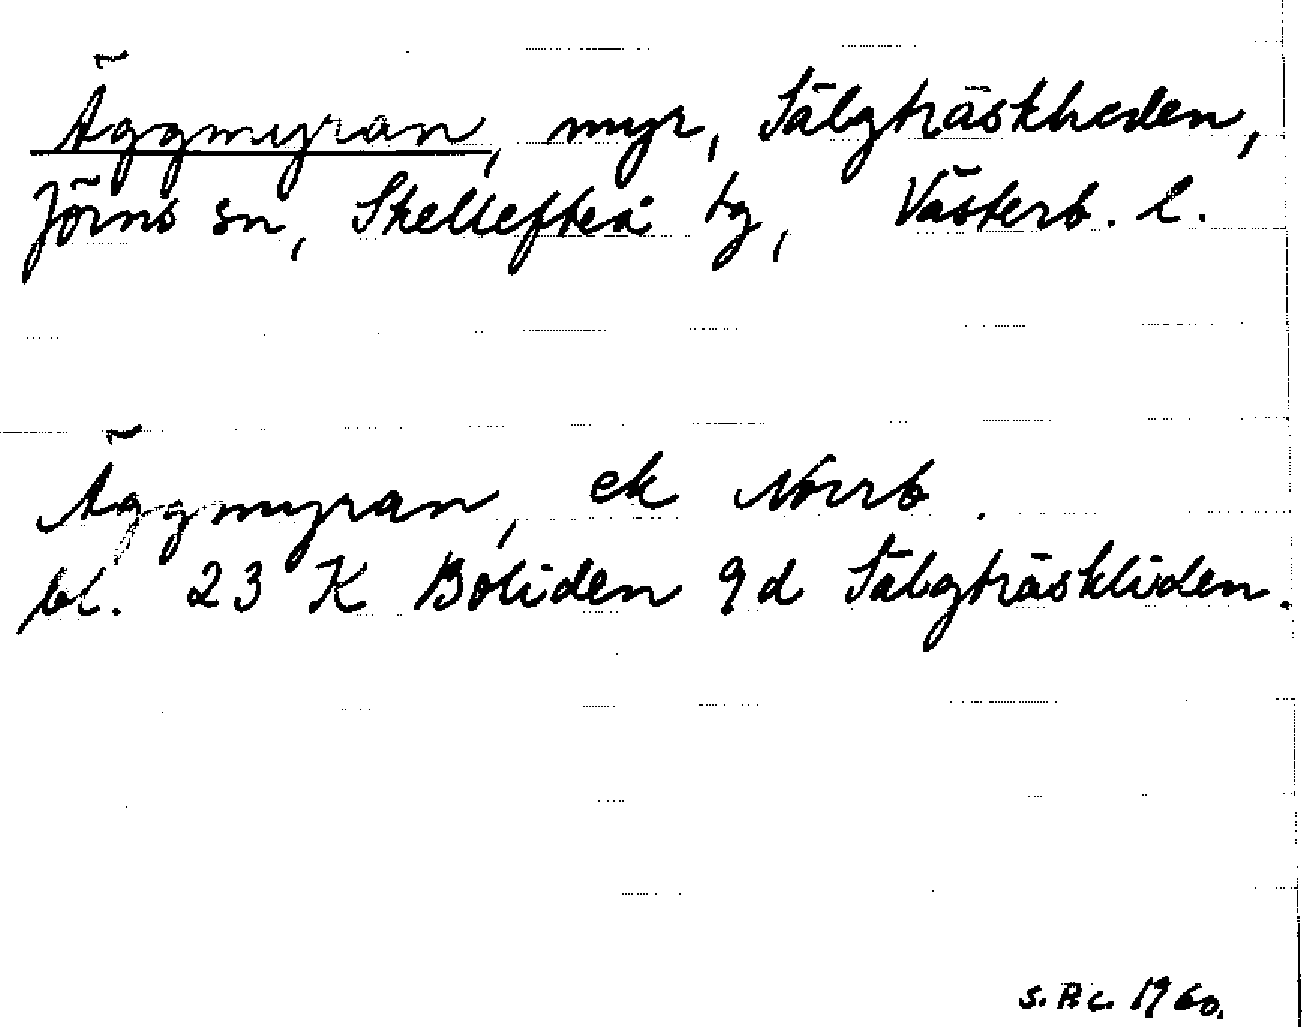 Äggmyran, myr, Sälgträskheden,
Jörns sn, Skellefteå tg, Västerb. l.
Äggmyran, ek Norrb.
bl. 23 K Boliden 9d Sälgträskliden.
S.B.C. 1960.